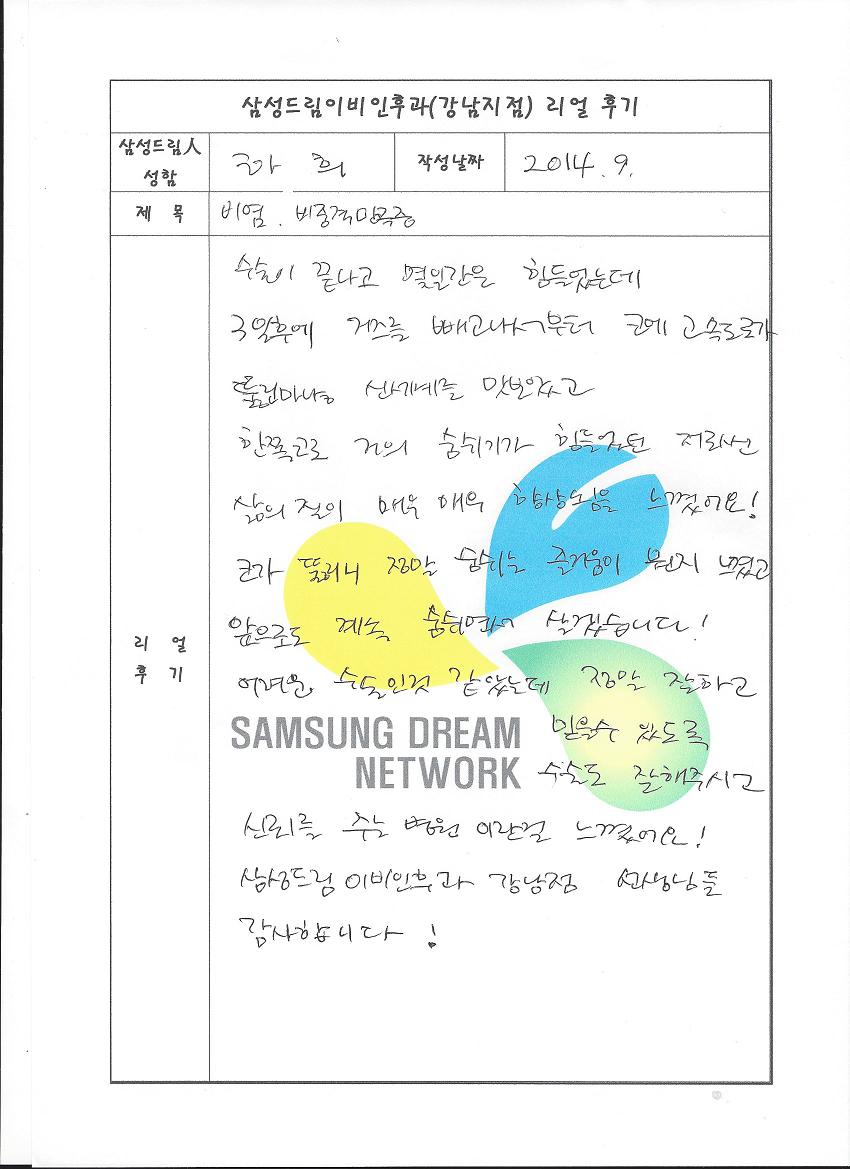 삼성드림이비인후과(강남지점) 리얼 후기
삼성드림人
성함
희
작성날짜
2014. 9.
제 목
비염. 비중격만곡증
리 얼
후 기
수술이 끝나고 몇일간은 힘들었는데
3일후에 거즈를 빼고나서부터 코에 고속도로가
뚫린마냥 신세계를 맛보았고
한쪽코로 거의 숨쉬기가 힘들었던 저로선
삶의 질이 매우 매우 향상됨을 느꼈어요!
코가 뚫리니 정말 숨쉬는 즐거움이 뭔지 느꼈고
앞으로도 계속 숨쉬면서 살겠습니다!
어려운 수술인것 같았는데 정말 잘하고
믿을수 있도록
SAMSUNG DREAM
NETWORK
수술도 잘해주시고
신뢰를 주는 병원 이란걸 느꼈어요!
삼성드림 이비인후과 강남점 선생님들
감사합니다 !